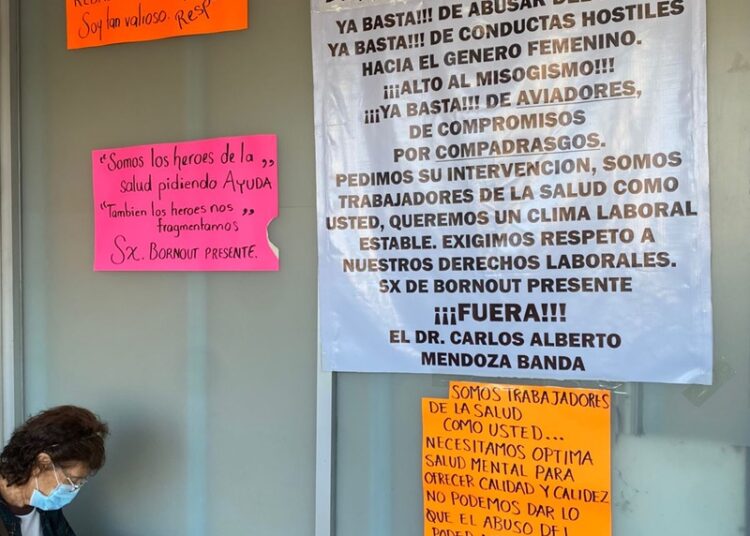 Soy tan valioso. Resp
YA BASTA!!! DE ABUSAR
YA BASTA!!! DE CONDUCTAS HOSTILES
HACIA EL GENERO FEMENINO.
¡¡¡ALTO AL MISOGISMO!!!
¡¡¡YA BASTA!!! DE AVIADORES,
DE COMPROMISOS
POR COMPADRASGOS.
PEDIMOS SU INTERVENCION, SOMOS
TRABAJADORES DE LA SALUD COMO
USTED, QUEREMOS UN CLIMA LABORAL
ESTABLE. EXIGIMOS RESPETO A
NUESTROS DERECHOS LABORALES.
SX DE BORNOUT PRESENTE
¡¡¡FUERA!!!
EL DR. CARLOS ALBERTO
MENDOZA BANDA
"Somos los heroes de la
salud pidiendo AYUDA"
"Tambien los heroes nos
fragmentamos"
Sx. BORNOUT PRESENTE.
SOMOS TRABAJADORES
DE LA SALUD
COMO USTED...
NECESITAMOS OPTIMA
SALUD MENTAL PARA
OFRECER CALIDAD Y CALIDEZ
NO PODEMOS DAR LO
QUE EL ABUSO DEL
PODER